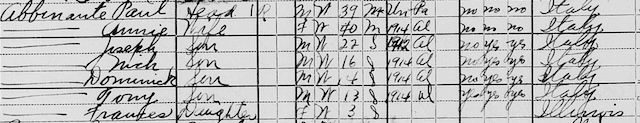 Abbinante Paul Head R M W 39 M Un Pa no no no Italy
Annie Wife F W 40 M 1914 Al no no no Italy
Joseph Son M W 22 S 1912 Al no yes yes Italy
Nich Son M W 16 S 1914 Al no yes yes Italy
Dominick Son M W 14 S 1914 Al no yes yes Italy
Tony Son M W 13 S 1914 Al yes yes yes Italy
Frances Daughter F W 3 S Illinois